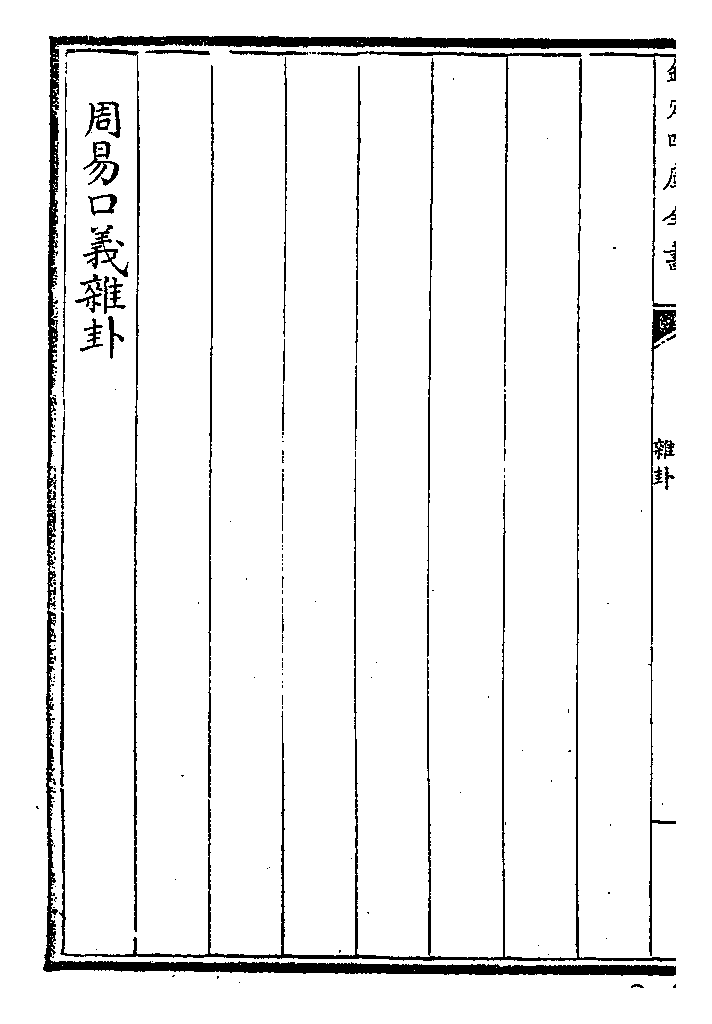 欽定四庫全書
雜卦
周易口義雜卦